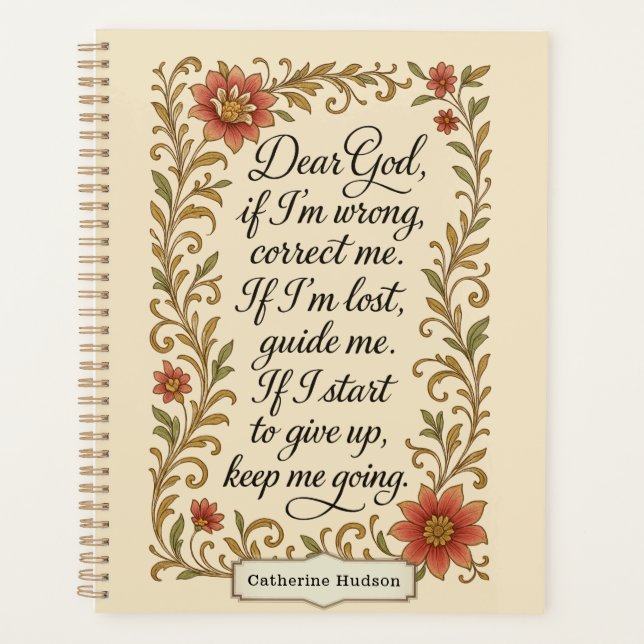 Dear God,
if I'm wrong,
correct me.
If I'm lost,
guide me.
If I start
to give up,
keep me going.
Catherine Hudson